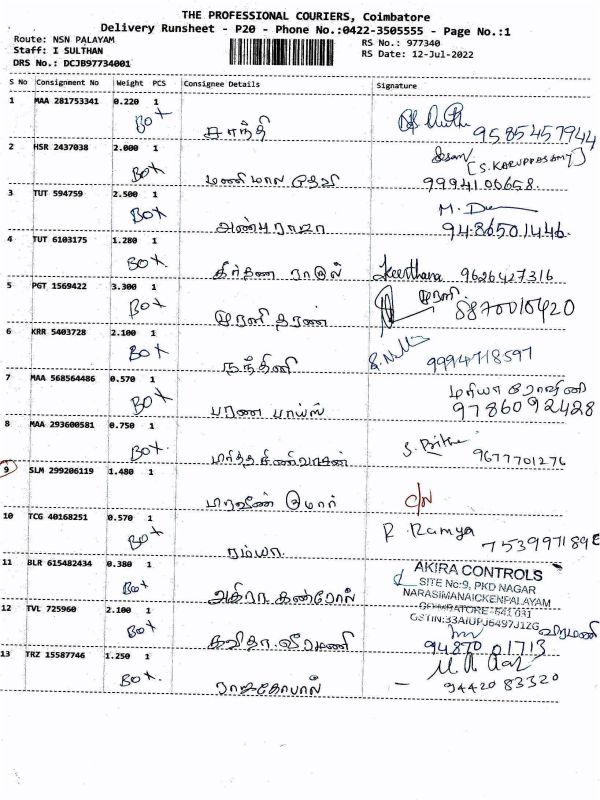 THE PROFESSIONAL COURIERS, Coimbatore
Delivery Runsheet - P20 - Phone No.:0422-3505555 - Page No.:1
Route: NSN PALAYAM
RS No.: 977340
Staff: I SULTHAN
RS Date: 12-Jul-2022
DRS No.: DCJB97734001
S No Consignment No Weight PCS Consignee Details Signature
1 MAA 281753341 0.220 1
BOX சாந்தி 9585457944
2 HSR 2437038 2.000 1
[S. KARUPPASAMY]
BOX மணிமாலாதேவி 9994100658.
3 TUT 594759 2.500 1
BOX அன்புராஜா 9486501446.
4 TUT 6103175 1.280 1
BOX. கீர்தனா ராகுல் Keerthana 9626427316
5 PGT 1569422 3.300 1
முரளி
BOX முரளி தரண் 8870010420
6 KRR 5403728 2.100 1
BOX நந்தினி 9994718597
7 MAA 568564486 0.570 1
BOX பரணி பாய்ஸ் 9786092428
8 MAA 293600581 0.750 1
BOX. 9677701276
9 SLM 299206119 1.480 1
C/N
10 TCG 40168251 0.570 1
R. Ramya
BOX ரம்யா.
11 BLR 615482434 0.380 1
AKIRA CONTROLS
SITE No:9, PKD NAGAR
NARASIMANAICKENPALAYAM
COIMBATORE-641 031
BOX அகிரா கண்ரோல்
12 TVL 725960 2.100 1
BOX கவிதா.வீரமணி வீரமணி
94870 01713
13 TRZ 15587746 1.250 1
BOX. ராஜகோபால் - 94420 83320